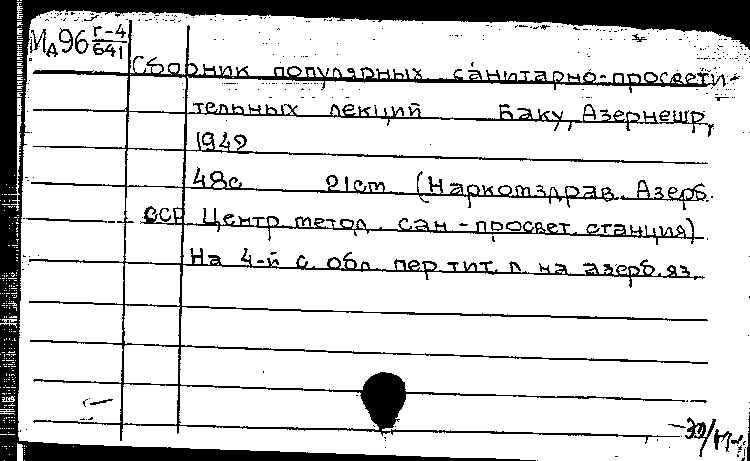 МА96 Г-4/641
Сборник популярных санитарно-просвети-
тельных лекций Баку, Азернешр,
1942
48с 21cm (Наркомздрав. Азерб.
ССР Центр. метод. сан-просвет. станция)
На 4-й с. обл. пер. тит. л. на азерб. яз.